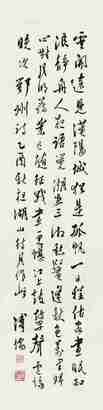 雲開遠見漢陽城猶是孤帆一日程估客晝眠知
浪静舟人夜語覺潮生三湘愁鬢逢秋色萬里歸
心對月明舊業已隨征戰盡更堪江上鼓鼙聲盧綸
晚次鄂州詩乙酉秋湖山